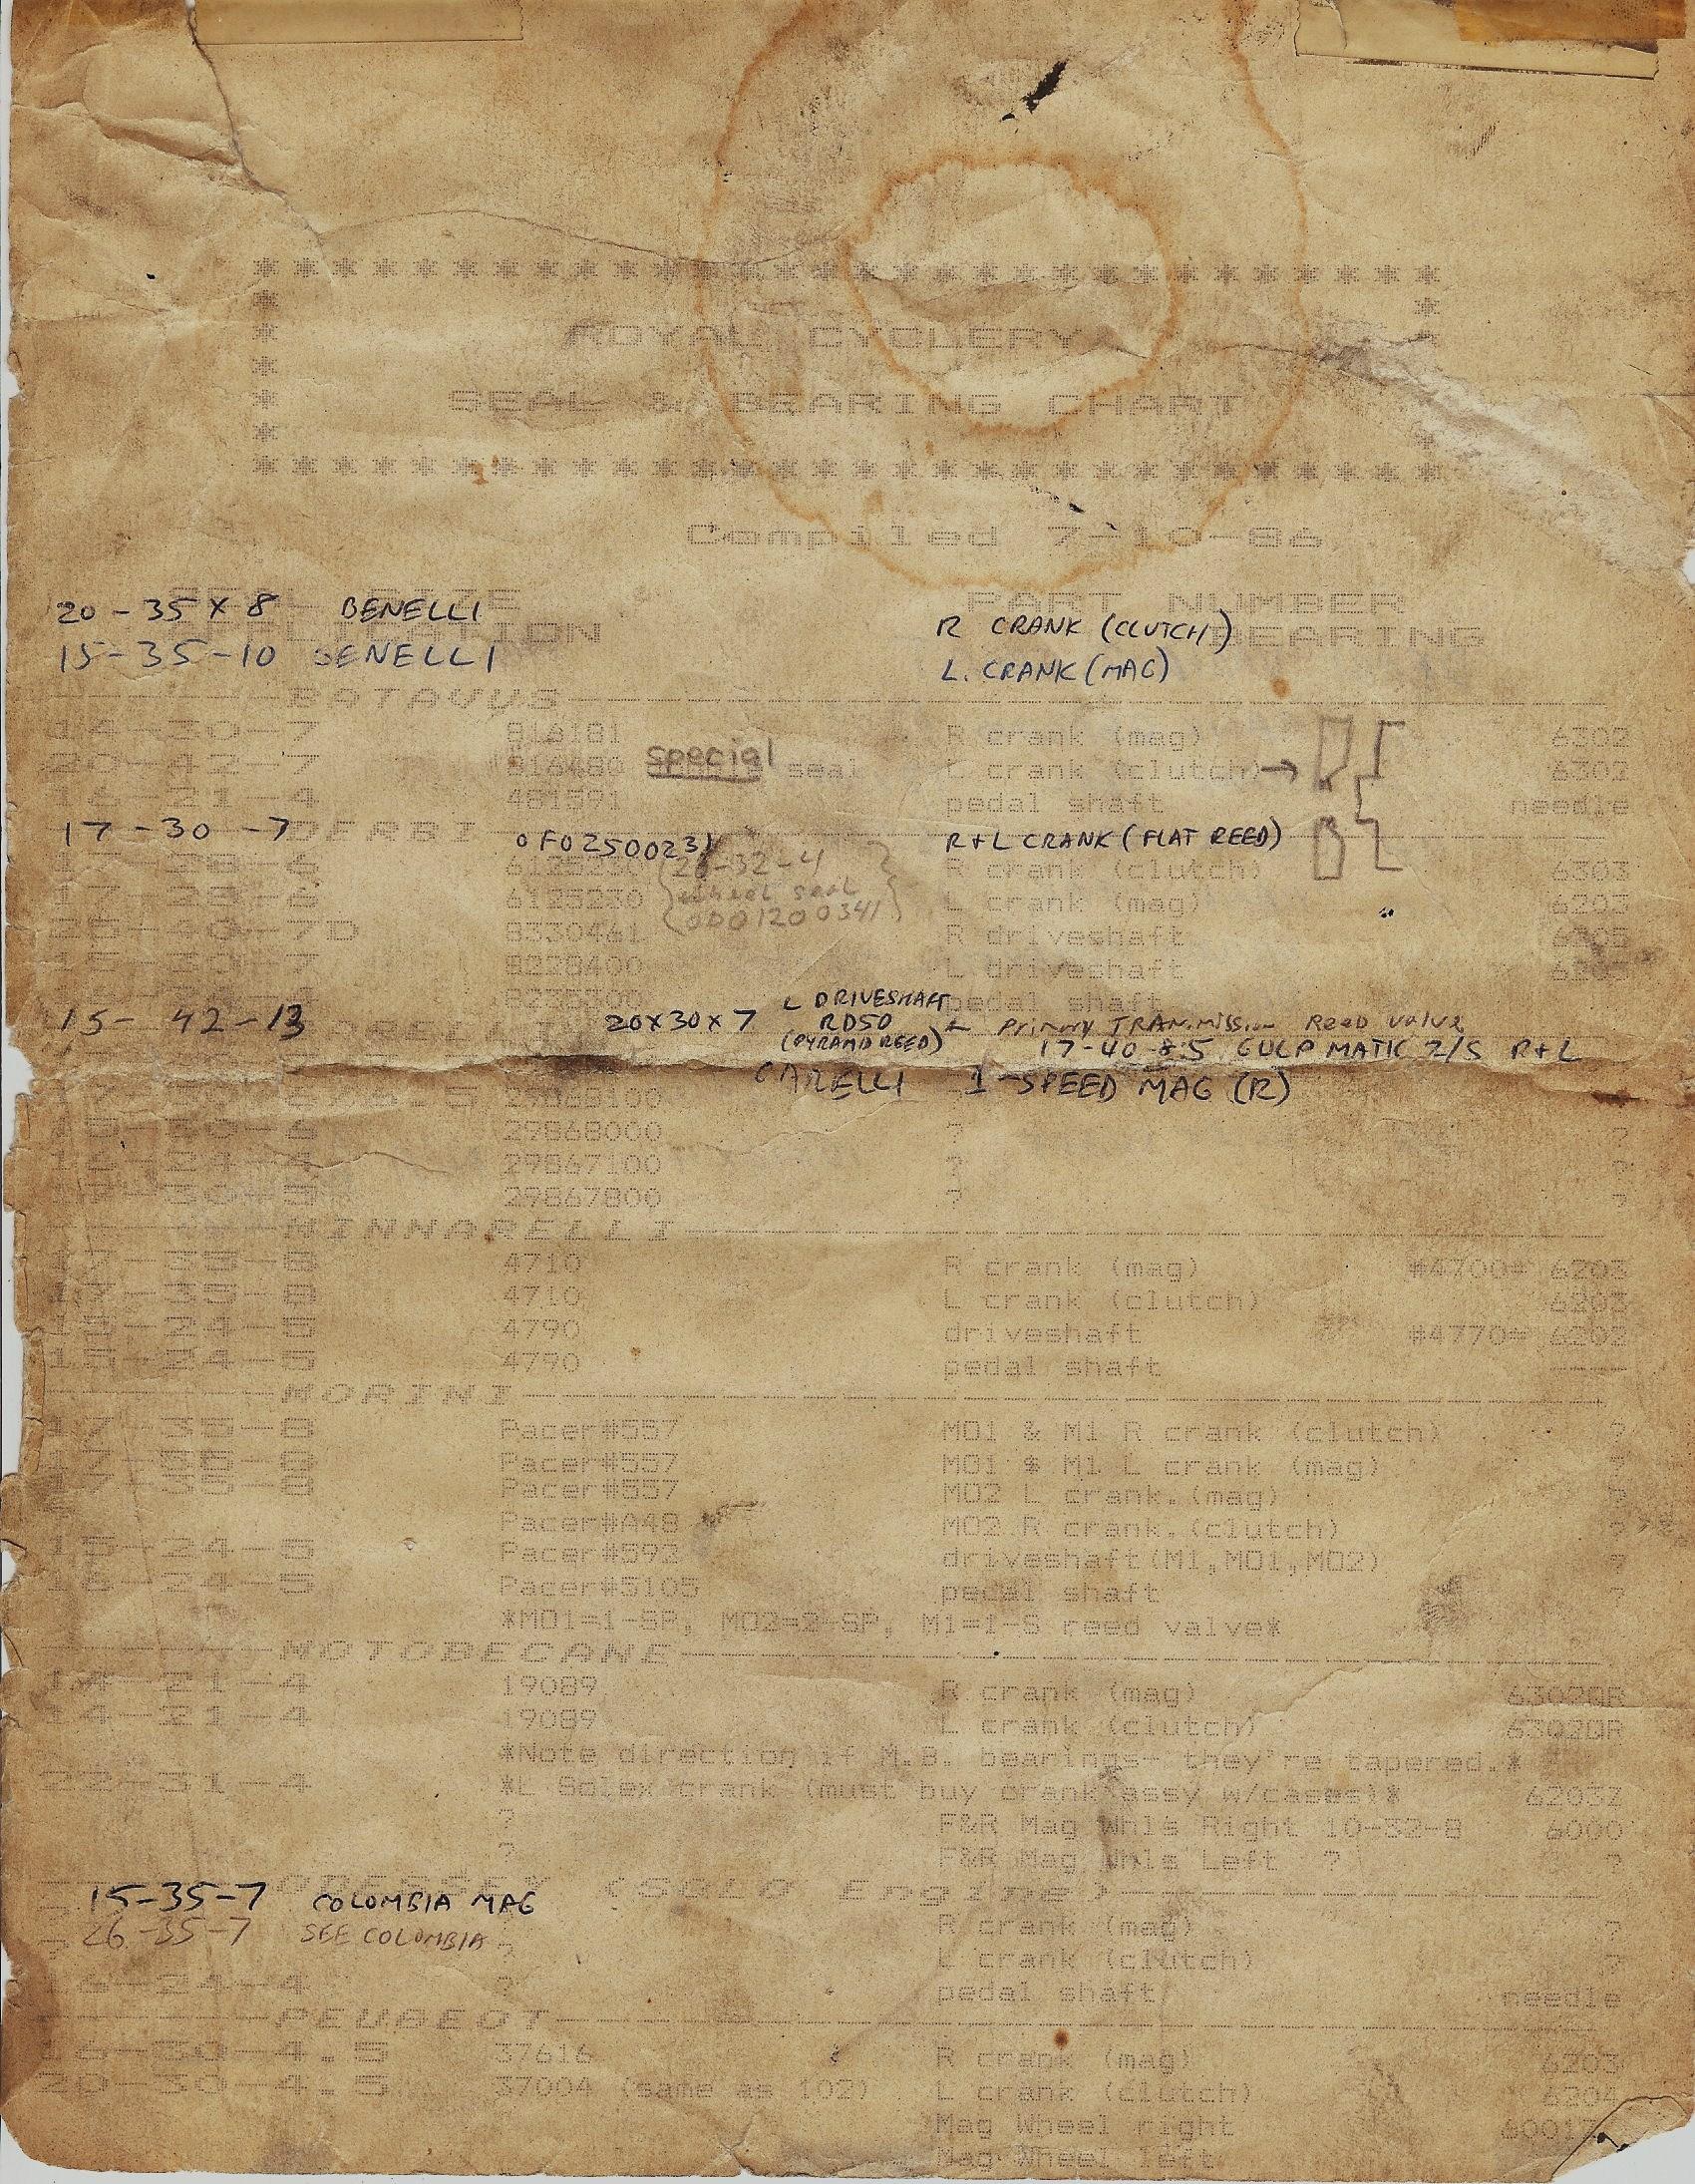 * * * * * * * * * * * * * * * * * * * * * * * * * * *
ROYAL CYCLERY
SEAL & BEARING CHART
* * * * * * * * * * * * * * * * * * * * * * * * * * *
Compiled 7-10-86
20-35 X 8 BENELLI PART NUMBER
R CRANK (CLUTCH) BEARING
15-35-10 BENELLI L. CRANK (MAG)
BATAVUS
14-30-7 816181 R crank (mag) 6302
20-42-7 816480 special seal L crank (clutch) → 6302
16-21-4 481591 pedal shaft needle
DERBI
17-30-7 0F02500231 R+L CRANK (FLAT REED)
R crank (clutch) 6303
17-28-6 6125230 L crank (mag) 6203
{26-32-4
wheel seal
0001200341}
8330461 R driveshaft
8228400 L driveshaft
pedal shaft
15-42-13 20X30X7 L DRIVESHAFT
RD50
(PYRAMID REED)
← Primary TRANSMISSION Reed valve
17-40-8.5 GULP MATIC 2/S R+L
GARELLI 1-SPEED MAG (R)
29868100
29868000 ? ?
16-24-4 29867100 ? ?
29867800 ? ?
MINNARELLI
17-35-8 4710 R crank (mag) #4700= 6203
17-35-8 4710 L crank (clutch) 6203
15-24-5 4790 driveshaft #4770= 6202
15-24-5 4790 pedal shaft ----
MORINI
17-35-8 Pacer#557 MO1 & M1 R crank (clutch) ?
17-35-8 Pacer#557 MO1 $ M1 L crank (mag) ?
17-35-8 Pacer#557 MO2 L crank.(mag) ?
? Pacer#A48 MO2 R crank.(clutch) ?
15-24-5 Pacer#592 driveshaft(M1,MO1,MO2) ?
16-24-5 Pacer#5105 pedal shaft ?
*MO1=1-SP, MO2=2-SP, M1=1-S reed valve*
MOTOBECANE
14-21-4 19089 R crank (mag) 6302QR
14-21-4 19089 L crank (clutch) 6302QR
*Note direction if M.B. bearings- they're tapered.*
22-31-4 *L Solex crank (must buy crank assy w/cases)* 6203Z
? F&R Mag Whls Right 10-32-8 6000
? F&R Mag Whls Left ? ?
(Solo Engine)
15-35-7 COLOMBIA MAG
R crank (mag) ?
26-35-7 SEE COLOMBIA ? L crank (clutch) ?
16-24-4 ? pedal shaft needle
PEUGEOT
16-30-4.5 37616 R crank (mag) 6203
20-30-4.5 37004 (same as 102) L crank (clutch) 6204
Mag Wheel right
Mag Wheel left